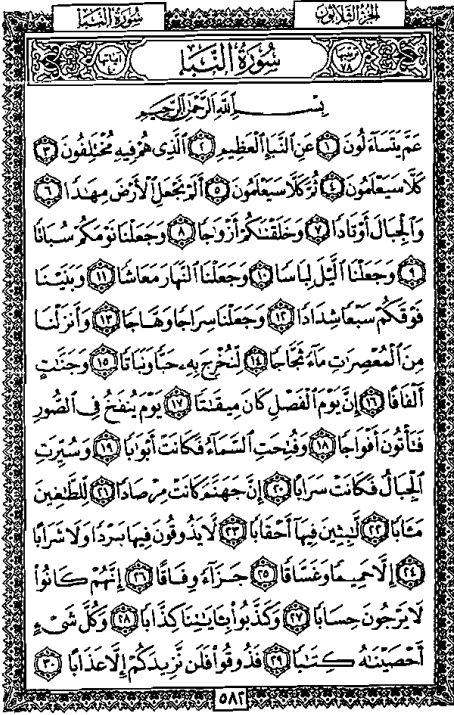 سُورَةُ النَّبَإِ
الجُزْءُ الثَّلَاثُونَ
ترتيبها ٧٨
سُورَةُ النَّبَإِ
آياتها ٤٠
بِسْمِ اللَّهِ الرَّحْمَٰنِ الرَّحِيمِ
عَمَّ يَتَسَآءَلُونَ ١ عَنِ النَّبَإِ الْعَظِيمِ ٢ الَّذِي هُمْ فِيهِ مُخْتَلِفُونَ ٣
كَلَّا سَيَعْلَمُونَ ٤ ثُمَّ كَلَّا سَيَعْلَمُونَ ٥ أَلَمْ نَجْعَلِ الْأَرْضَ مِهَٰدًا ٦
وَالْجِبَالَ أَوْتَادًا ٧ وَخَلَقْنَٰكُمْ أَزْوَٰجًا ٨ وَجَعَلْنَا نَوْمَكُمْ سُبَاتًا
٩ وَجَعَلْنَا الَّيْلَ لِبَاسًا ١٠ وَجَعَلْنَا النَّهَارَ مَعَاشًا ١١ وَبَنَيْنَا
فَوْقَكُمْ سَبْعًا شِدَادًا ١٢ وَجَعَلْنَا سِرَاجًا وَهَّاجًا ١٣ وَأَنزَلْنَا
مِنَ الْمُعْصِرَٰتِ مَآءً ثَجَّاجًا ١٤ لِّنُخْرِجَ بِهِۦ حَبًّا وَنَبَاتًا ١٥ وَجَنَّٰتٍ
أَلْفَافًا ١٦ إِنَّ يَوْمَ الْفَصْلِ كَانَ مِيقَٰتًا ١٧ يَوْمَ يُنفَخُ فِي الصُّورِ
فَتَأْتُونَ أَفْوَاجًا ١٨ وَفُتِحَتِ السَّمَآءُ فَكَانَتْ أَبْوَٰبًا ١٩ وَسُيِّرَتِ
الْجِبَالُ فَكَانَتْ سَرَابًا ٢٠ إِنَّ جَهَنَّمَ كَانَتْ مِرْصَادًا ٢١ لِّلطَّٰغِينَ
مَـَٔابًا ٢٢ لَّٰبِثِينَ فِيهَآ أَحْقَابًا ٢٣ لَّا يَذُوقُونَ فِيهَا بَرْدًا وَلَا شَرَابًا
٢٤ إِلَّا حَمِيمًا وَغَسَّاقًا ٢٥ جَزَآءً وِفَاقًا ٢٦ إِنَّهُمْ كَانُوا۟
لَا يَرْجُونَ حِسَابًا ٢٧ وَكَذَّبُوا۟ بِـَٔايَٰتِنَا كِذَّابًا ٢٨ وَكُلَّ شَيْءٍ
أَحْصَيْنَٰهُ كِتَٰبًا ٢٩ فَذُوقُوا۟ فَلَن نَّزِيدَكُمْ إِلَّا عَذَابًا ٣٠
٥٨٢